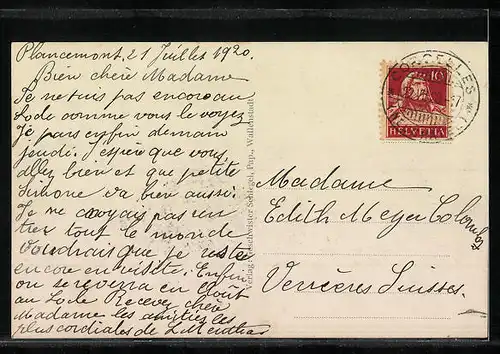 Plancemont, 21 Juillet 1920.
Bien chère Madame
Je ne suis pas encore au
Locle comme vous le voyez
Je pars enfin demain
jeudi. J'espère que vous
allez bien et que petite
Simone va bien aussi.
Je ne croyais pas
tout le monde
Voudrais que je reste
encore en visite. Enfin
on se reverra en Août
au Locle Recevez chère
Madame les amitiés les
plus cordiales de L.
Verlag Photomeister Schlegel, Pap., Wallenstadt
CORCELLES
10
HELVETIA
Madame
Edith Meyer Colomb
Verrières Suisses.